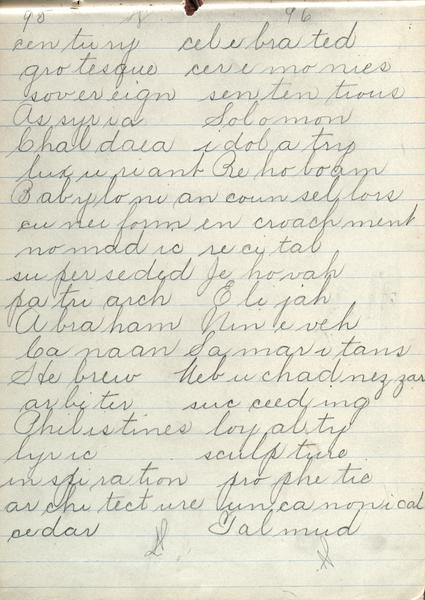 95 96
century celebrated
grotesque ceremonies
sovereign sententious
Assyria Solomon
Chaldaea idolatry
luxuriant Rehoboam
Babylonian counsellors
cuneiform encroachment
nomadic recital
superseded Jehovah
patriarch Elijah
Abraham Nineveh
Canaan Samaritans
Hebrew Nebuchadnezzar
arbiter succeeding
Philistines loyalty
lyric sculpture
inspiration prophetic
architecture uncanonical
cedar Talmud